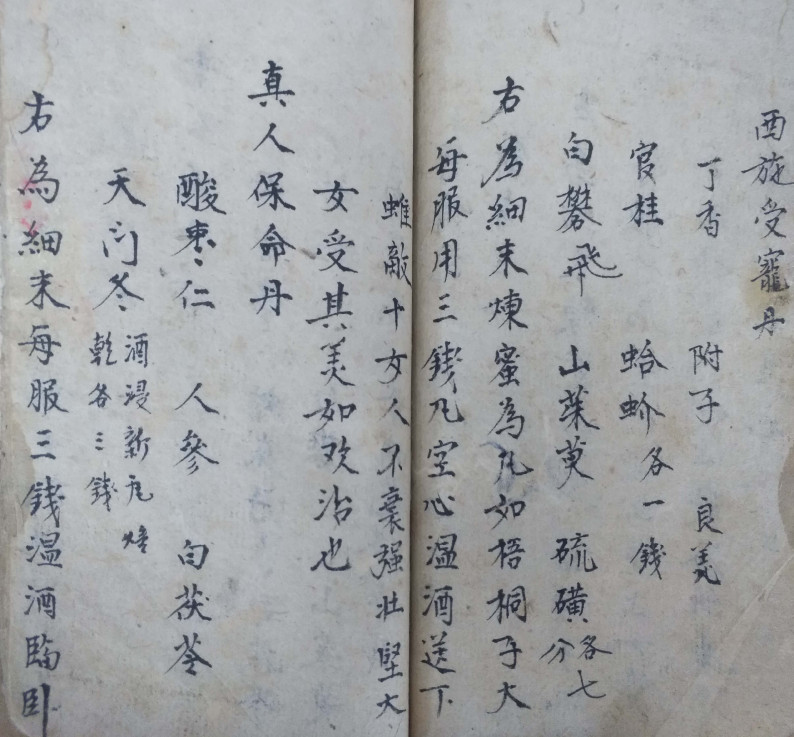 西施受寵丹
丁香 附子 良羌
官桂 蛤蚧各一錢
白礬飛 山茱萸 硫磺各七分
右為細末煉蜜為凡如梧桐子大
每服用三錢凡空心溫酒送下
雖敵十女人不衰强壯堅大
女受其美如欢洽也
真人保命丹
酸枣仁 人參 白茯苓
天门冬酒浸新瓦焙乾各三錢
右為細末每服三錢温酒臨卧